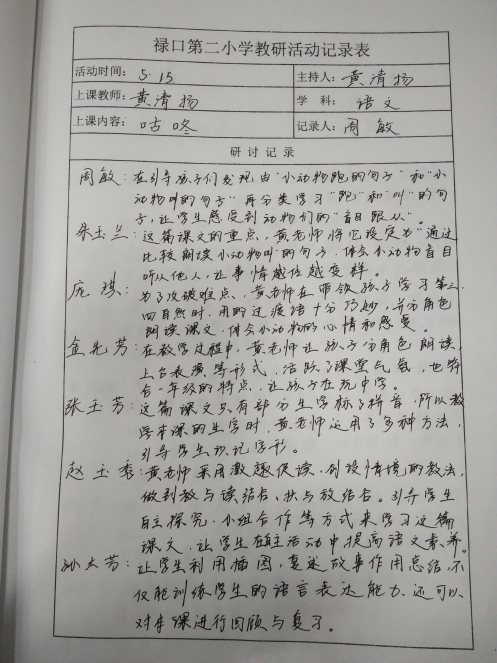 禄口第二小学教研活动记录表
活动时间：5.15 主持人：黄清扬
上课教师：黄清扬 学 科：语文
上课内容：咕咚 记录人：周敏
研 讨 记 录
周敏：在引导孩子们发现由“小动物跑的句子”和“小
动物叫的句子”再分类学习“跑”和“叫”的句
子，让学生感受到动物们的“盲目跟从”。
朱玉兰：这篇课文的重点，黄老师将它设定为“通过
比较朗读小动物叫”的句子，体会小动物盲目
听从他人，让事情越传越变样。
庞琪：为了攻破难点，黄老师在带领孩子学习第三、
四自然时，用的过渡语十分巧妙，并分角色
朗读课文，体会小动物的心情和感受。
金先芳：在教学过程中，黄老师让孩子分角色朗读，
上台表演等形式，活跃了课堂气氛，也符
合一年级的特点，让孩子在玩中学。
张玉芳：这篇课文只有部分生字标了拼音，所以教
学本课的生字时，黄老师运用了多种方法，
引导学生识记字形。
赵玉秀：黄老师采用激趣促读，创设情境的教法，
做到教与读结合，扶与放结合。引导学生
自主探究，小组合作等方式来学习这篇
课文，让学生在自主活动中提高语文素养。
孙大芳：让学生利用插图，复述故事作用总结，不
仅能训练学生的语言表达能力，还可以
对本课进行回顾与复习。